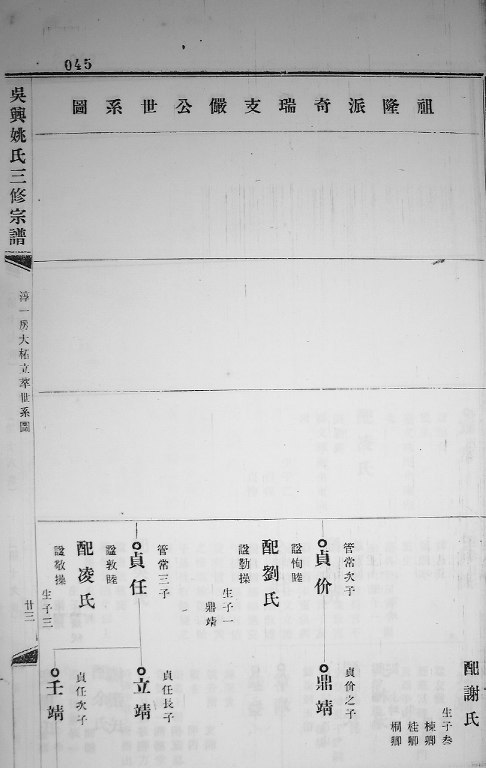 045
祖隆派奇瑞支儼公世系圖
配謝氏
生子叁
棟卿
桂卿
桐卿
管常次子
貞价
諡恂睦
配劉氏
諡勤操
生子一
鼎靖
貞价之子
鼎靖
管常三子
貞任
諡敦睦
配凌氏
諡敬操
生子三
貞任長子
立靖
貞任次子
壬靖
吳興姚氏三修宗譜
淳一房大柘立萃世系圖
廿三